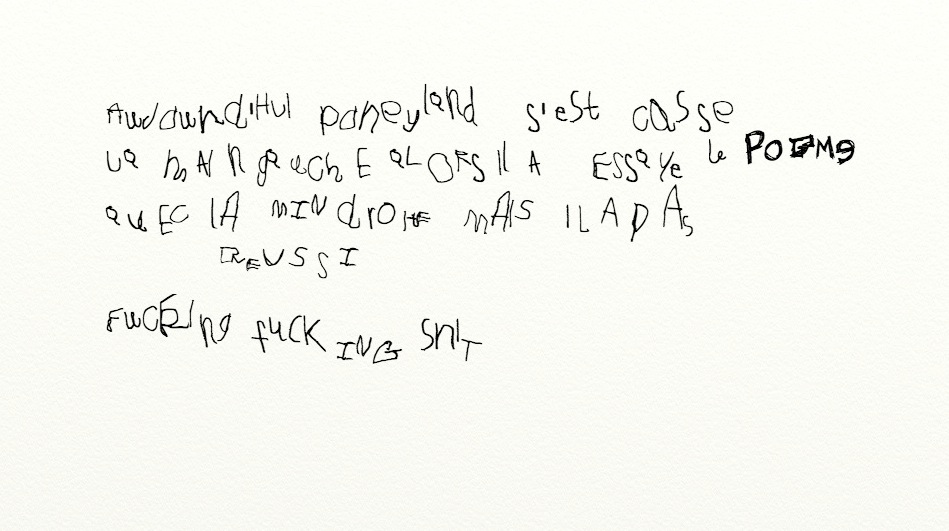 Aujourd'Hui poneyland s'est casse
la mAIN gauchE aLORs Il A ESSaYe le POEMe
avEC lA MIN droite mAIS ILA pAs
REUSSI
FUCKING fUCKING SHIT